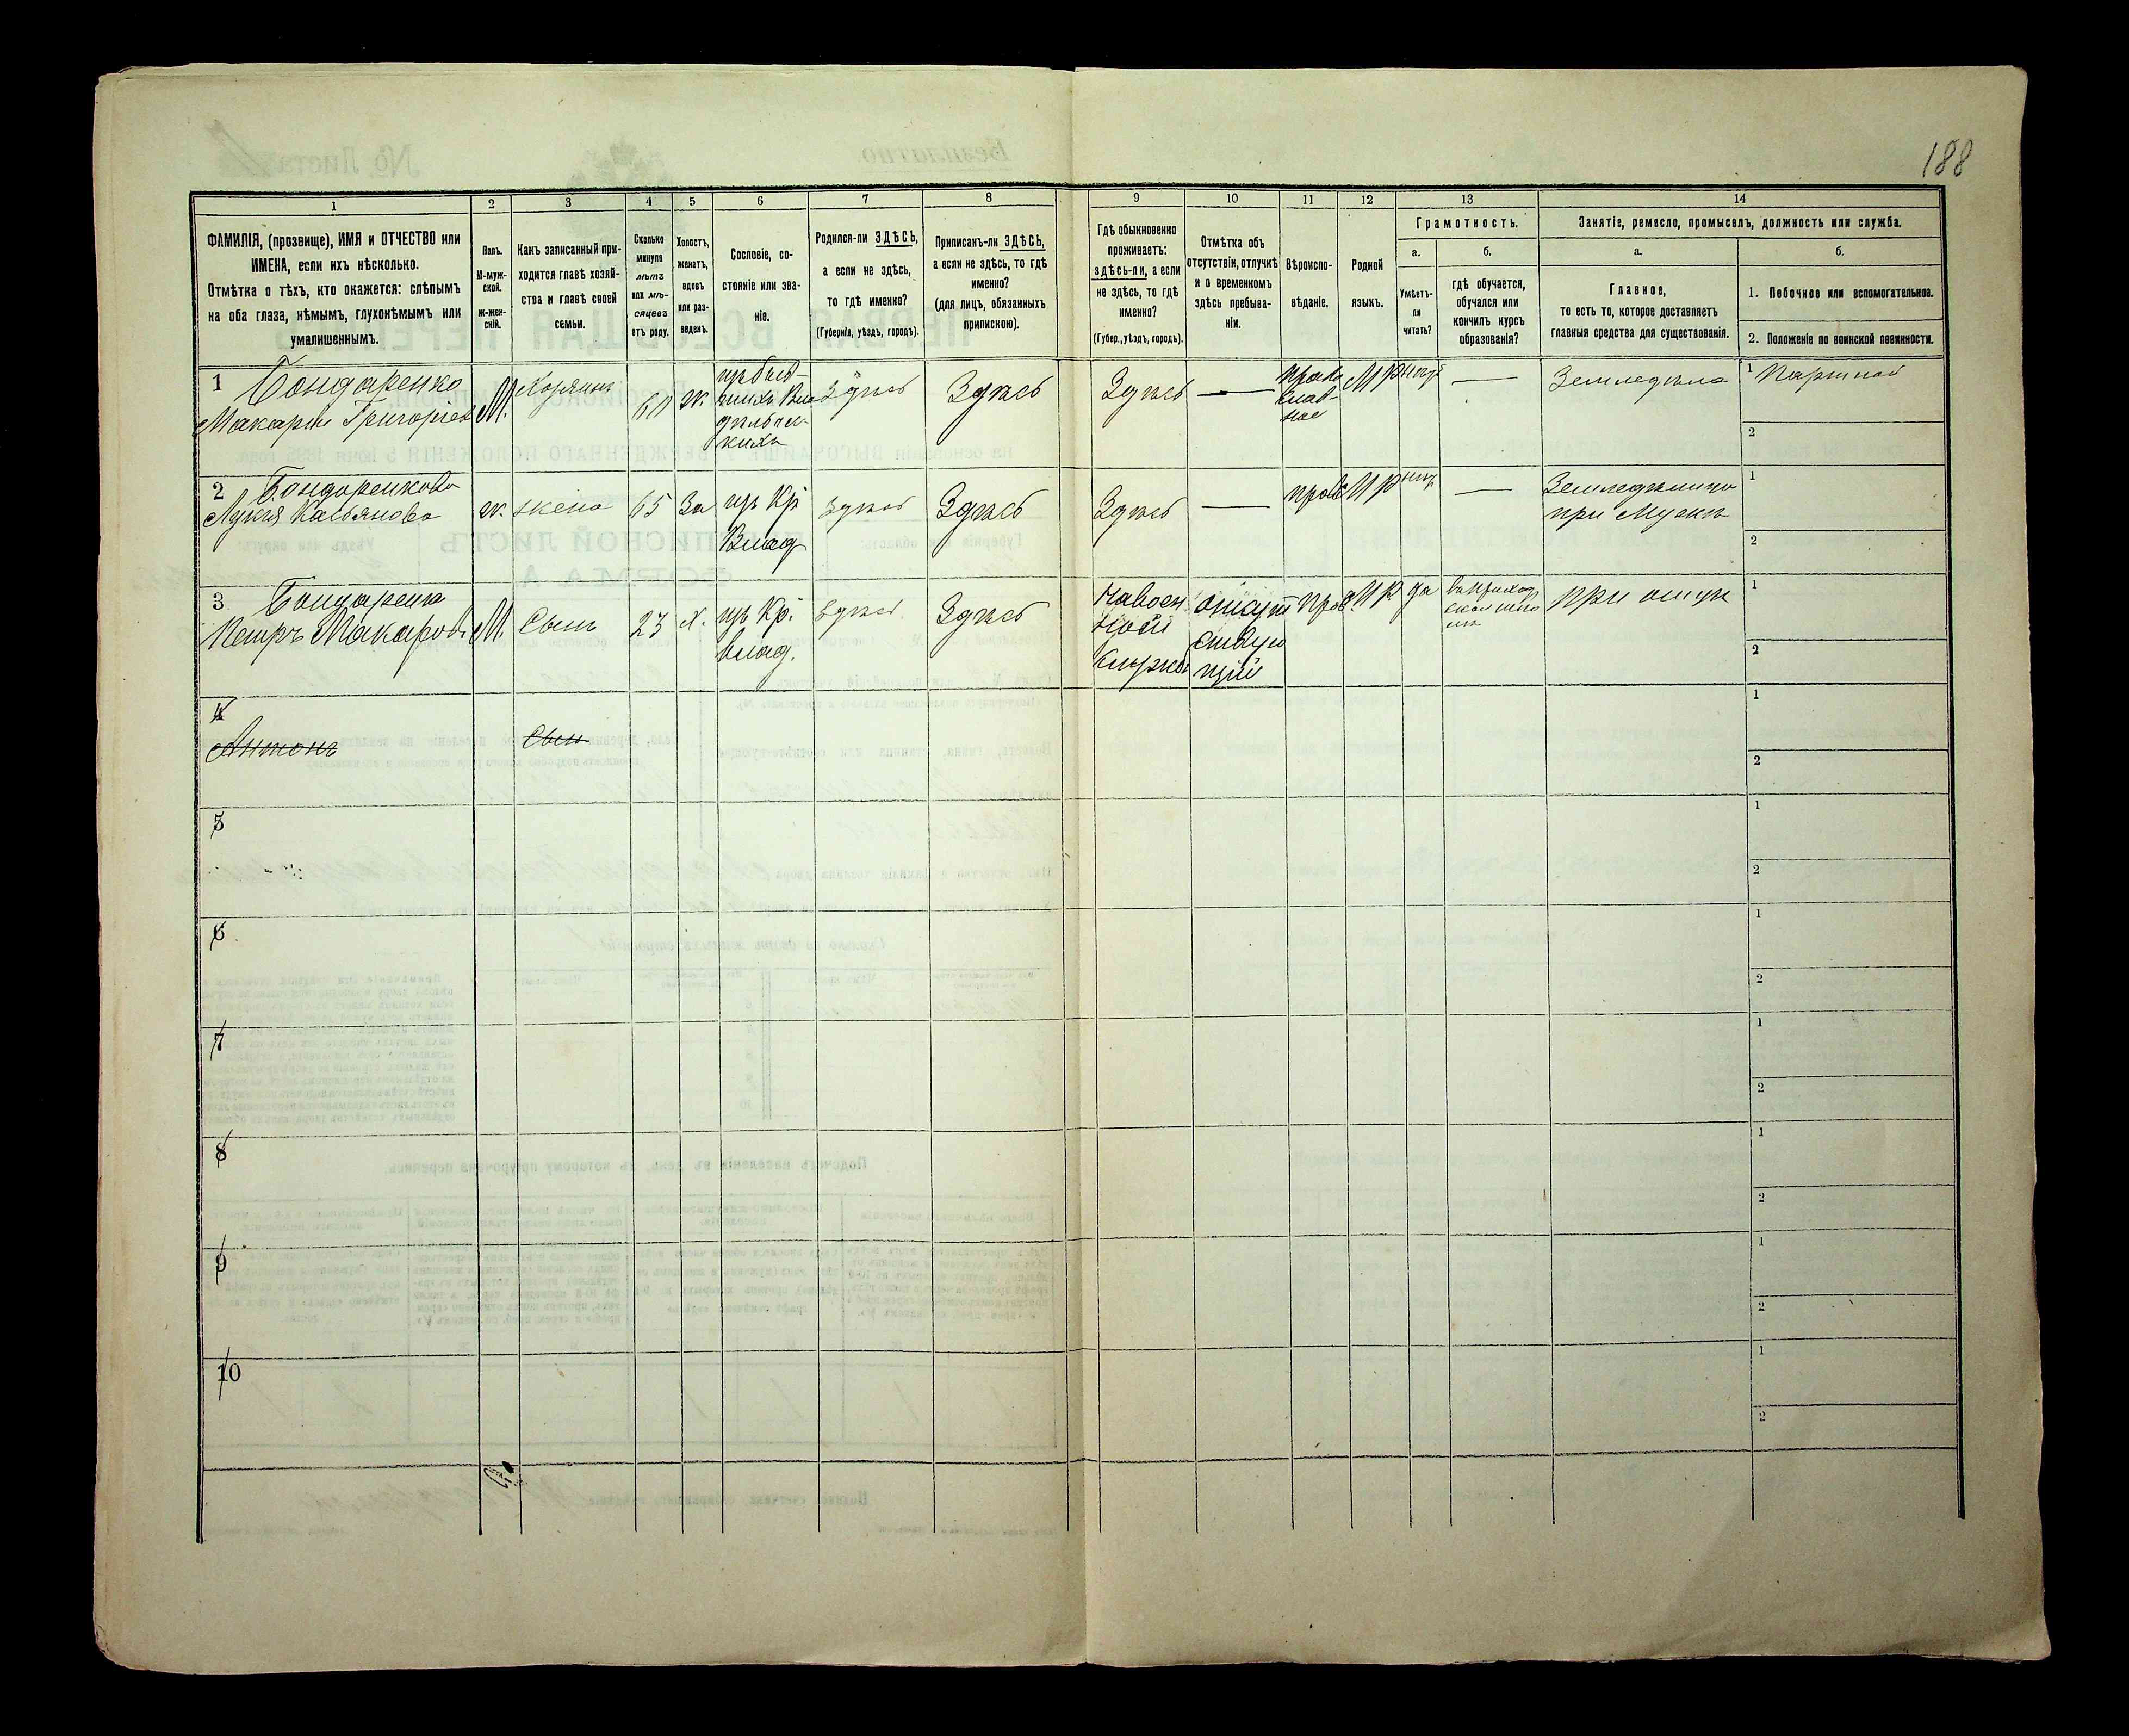 188
1
2
3
4
5
6
7
8
9
10
11
12
13
14
ФАМИЛІЯ, (прозвище), ИМЯ и ОТЧЕСТВО или
ИМЕНА, если ихъ нѣсколько.
Отмѣтка о тѣхъ, кто окажется: слѣпымъ
на оба глаза, нѣмымъ, глухонѣмымъ или
умалишеннымъ.
Полъ.
М-муж-
ской.
ж-жен-
скій.
Какъ записанный при-
ходится главѣ хозяй-
ства и главѣ своей
семьи.
Сколько
минуло
лѣтъ
или мѣ-
сяцевъ
отъ роду.
Холостъ,
женатъ,
вдовъ
или раз-
веденъ.
Сословіе, со-
стояніе или зва-
ніе.
Родился-ли ЗДѢСЬ,
а если не здѣсь,
то гдѣ именно?
(Губернія, уѣздъ, городъ).
Приписанъ-ли ЗДѢСЬ,
а если не здѣсь, то гдѣ
именно?
(для лицъ, обязанныхъ
припискою).
Гдѣ обыкновенно
проживаетъ:
здѣсь-ли, а если
не здѣсь, то гдѣ
именно?
(Губер., уѣздъ, городъ).
Отмѣтка объ
отсутствіи, отлучкѣ
и о временномъ
здѣсь пребыва-
ніи.
Вѣроиспо-
вѣданіе.
Родной
языкъ.
Грамотность.
а.
Умѣетъ-
ли
читать?
б.
гдѣ обучается,
обучался или
кончилъ курсъ
образованія?
Занятіе, ремесло, промыселъ, должность или служба.
а.
Главное,
то есть то, которое доставляетъ
главныя средства для существованія.
б.
1. Побочное или вспомогательное.
2. Положеніе по воинской повинности.
1 Бондаренко
Макаръ Григорьев
М.
Хозяинъ
60
ж.
Здѣсь
Здѣсь
Здѣсь
—
право
слав
ное
М Р
—
Земледѣліе
1
2
2 Бондаренкова
Касьянова
ж.
жена
65
За
изъ Кр
Влад
Здѣсь
Здѣсь
Здѣсь
—
прав
М Р
—
при Мужѣ
1
2
3
Петръ Макаров
М.
Сынъ
23
х.
изъ Кр.
влад.
Здѣсь
Здѣсь
На воен
ной
службе
отсут
ствую
щій
прав
М Р
да
при отцѣ
1
2
4
Антонъ
Сын
1
2
5
1
2
6
1
2
7
1
2
8
1
2
9
1
2
10
1
2